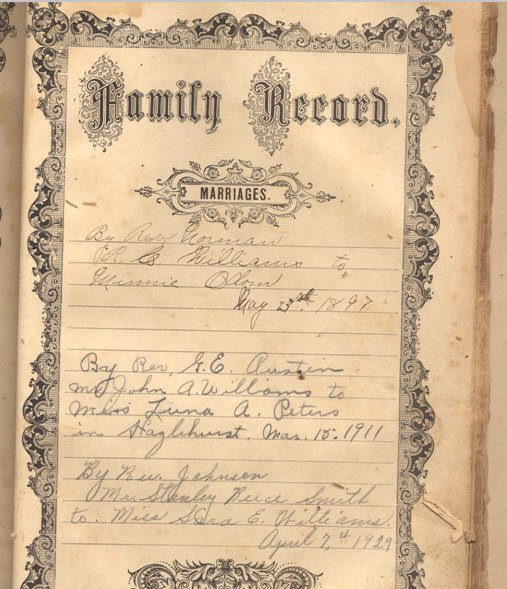 Family Record.
MARRIAGES.
By Rev Norman
Williams to
Minnie
May 23rd 1897
By Rev. G. E. Austin
Mr John A. Williams to
Miss Luna A. Peters
in Hazlehurst, Mar. 15. 1911
By Rev. Johnson
Mr. Stanley Reece Smith
to. Miss Sara E. Williams.
April 7, 1929